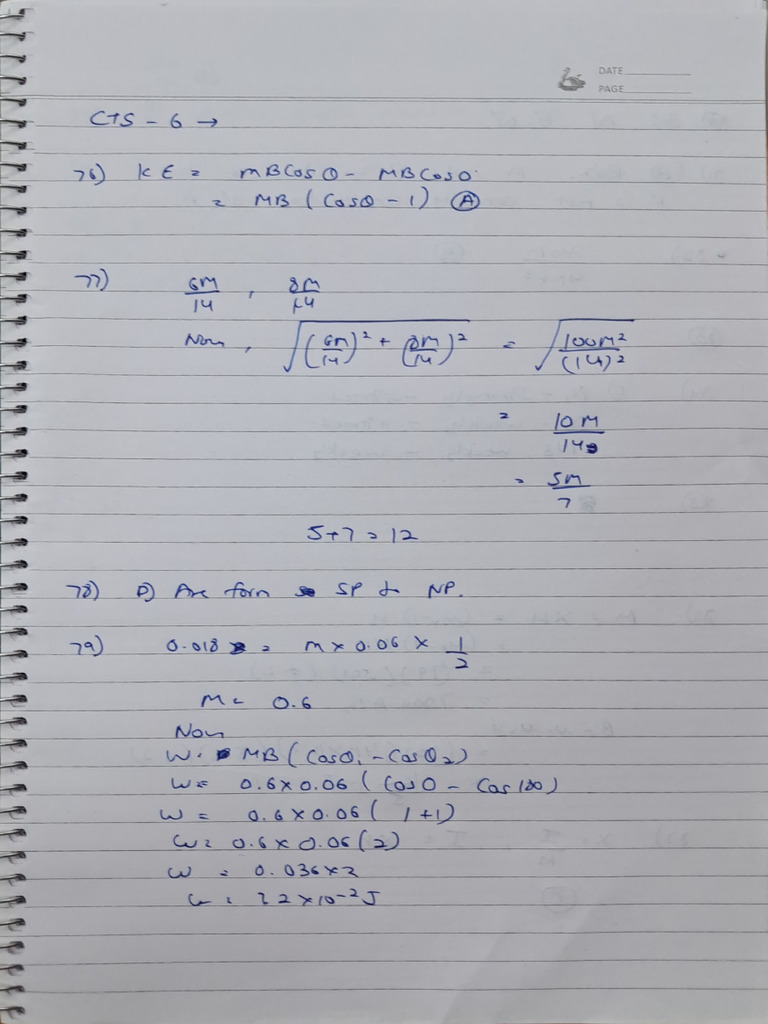 DATE
PAGE
CTS - 6 →
76) KE = MBCosθ - MBCosO
= MB (Cosθ - 1) Ⓐ
77) 6M/14 , 8M/14
Now, √((6M/14)² + (8M/14)²) = √(100M²/(14)²)
= 10M/14
= 5M/7
5+7=12
78) D) Are form SP to NP.
79) 0.018 = M × 0.06 × 1/2
M = 0.6
Now
W = MB (Cosθ₁ - Cosθ₂)
W = 0.6 × 0.06 (CosO - Cos180)
W = 0.6 × 0.06 (1+1)
W = 0.6 × 0.06 (2)
W = 0.036×2
W = 7.2 × 10⁻² J